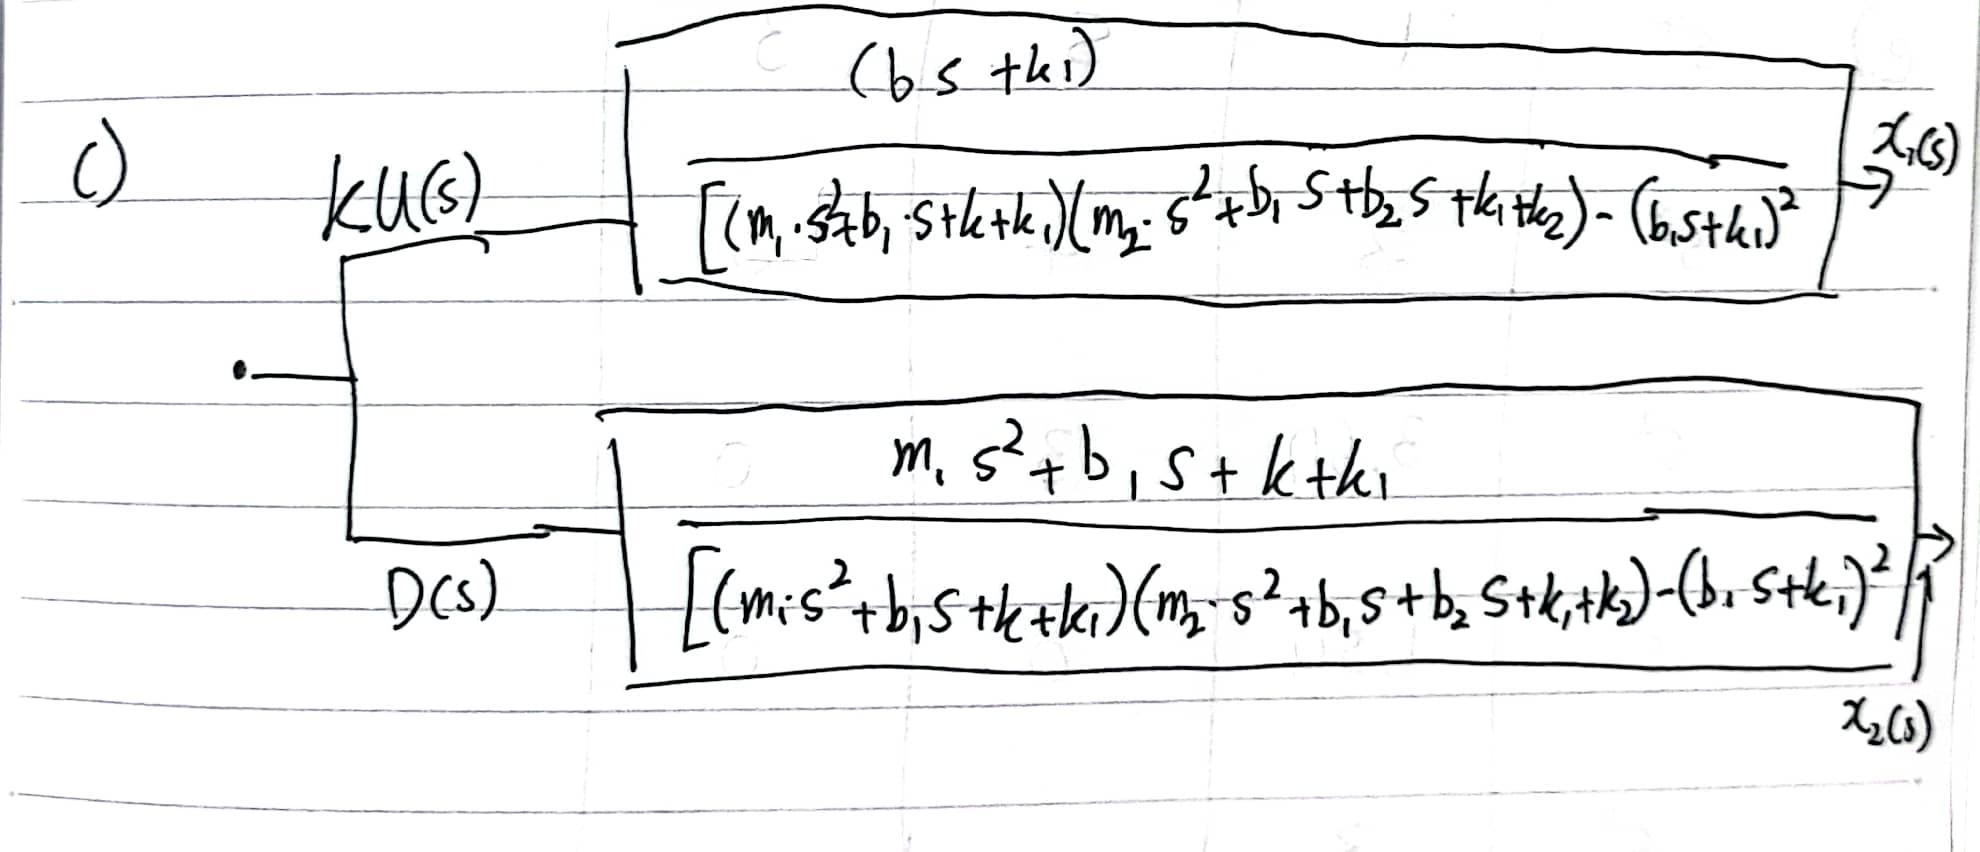 c)
KU(s)
(bs+k₁)
[(m₁·s²+b₁·s+k+k₁)(m₂·s²+b₁s+b₂s+k₁+k₂)-(b₁s+k₁)²
x₁(s)
D(s)
m₁s²+b₁s+k+k₁
[(m₁s²+b₁s+k+k₁)(m₂·s²+b₁s+b₂s+k₁+k₂)-(b₁s+k₁)²
x₂(s)